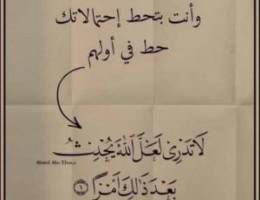 وأنت بتحط إحتمالاتك
حط في أولهم
لَا تَدْرِي لَعَلَّ ٱللَّهَ يُحْدِثُ
بَعْدَ ذَٰلِكَ أَمْرًا ١